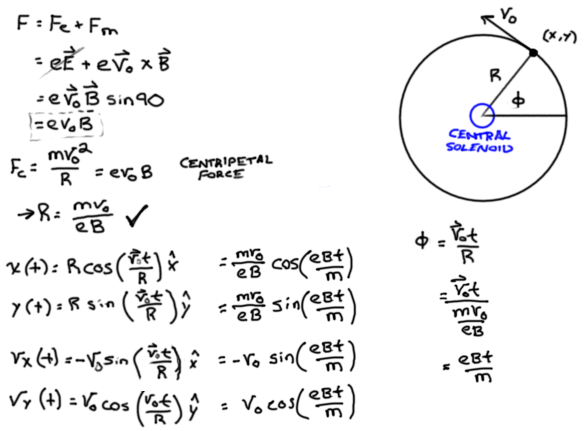 F = Fₑ + Fₘ
= eE⃗ + ev⃗₀ × B⃗
= ev⃗₀B⃗ sin90
= ev₀B
F꜀ = mv₀²/R = ev₀B CENTRIPETAL FORCE
→ R = mv₀/eB ✓
x(t) = R cos(v⃗₀t/R) x̂ = mv₀/eB cos(eBt/m)
y(t) = R sin(v⃗₀t/R) ŷ = mv₀/eB sin(eBt/m)
vx(t) = -v₀ sin(v⃗₀t/R) x̂ = -v₀ sin(eBt/m)
vy(t) = v₀ cos(v₀t/R) ŷ = v₀ cos(eBt/m)
v⃗₀
(x,y)
R
ϕ
CENTRAL
SOLENOID
ϕ = v⃗₀t/R
= v⃗₀t/(mv₀/eB)
= eBt/m